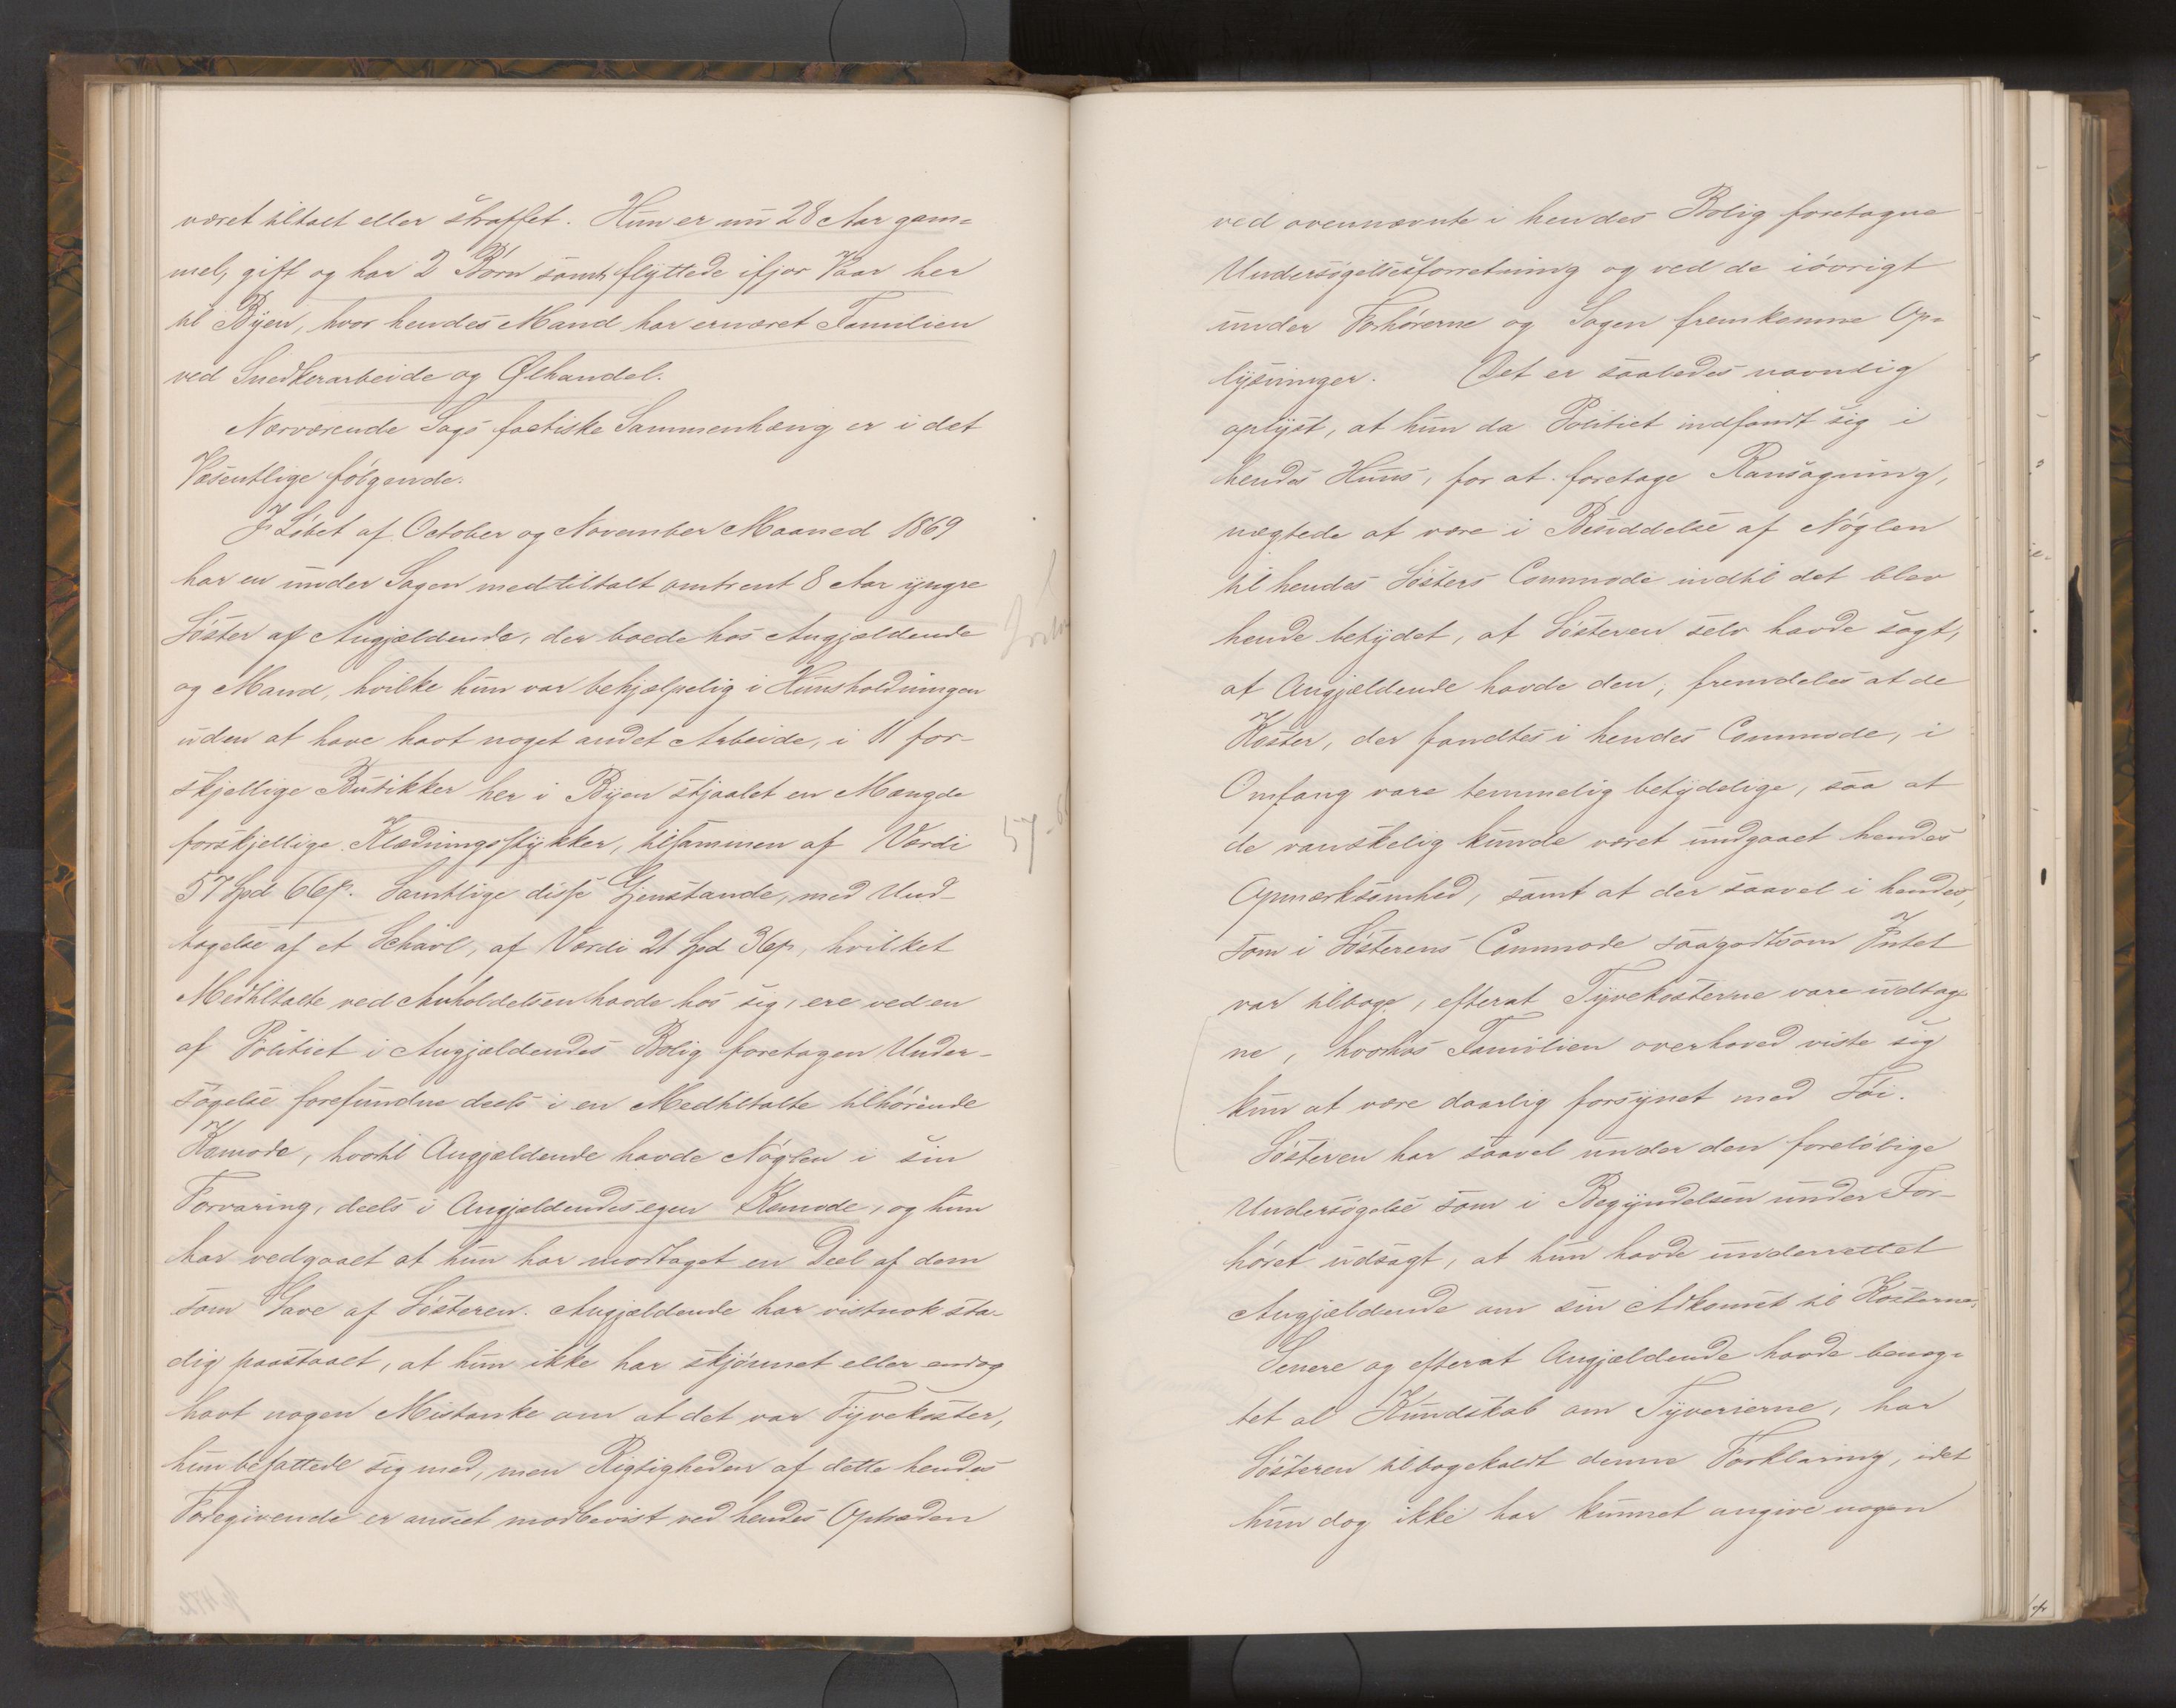 været tiltalt eller straffet. Hun er nu 28 Aar gam-
mel, gift og har 2 Børn samt flyttede ifjor Vaar her
til Byen, hvor hendes Mand har ernæret Familien
ved Snedkerarbeide og Ølhandel.
Nærværende Sags factiske Sammenhæng er i det
Væsentlige følgende:
I Løbet af October og November Maaned 1869
har en under Sagen medtiltalt omtrent 8 Aar yngre
Søster af Angjældende, der boede hos Angjældende
og Mand, hvilke hun var behjælpelig i Huusholdningen
uden at have havt noget andet Arbeide, i 11 for-
skjellige Butikker her i Byen stjaalet en Mængde
forskjellige Klædningsstykker, tilsammen af Værdi
57 Spd 66 β. Samtlige disse Gjenstande, med Und-
tagelse af et Schavl, af Værdi 2 Spd 36 β, hvilket
Medtiltalte ved Anholdelsen havde hos sig, ere ved en
af Politiet i Angjældendes Bolig foretagen Under-
søgelse forefundne deels i en Medtiltalte tilhørende
Komode, hvortil Angjældende havde Nøglen i sin
Forvaring, deels i Angjældendes egen Komode, og hun
har vedgaaet at hun har modtaget en Deel af dem
som Gave af Søsteren. Angjældende har vistnok sta-
dig paastaaet, at hun ikke har skjønnet eller endog
havt nogen Mistanke om at det var Tyvekoster,
hun befattede sig med, men Rigtigheden af dette hendes
Foregivende er anseet modbevist ved hendes Optræden
ved ovennævnte i hendes Bolig foretagne
Undersøgelsesforretning og ved de iøvrigt
under Forhørerne og Sagen fremkomne Op-
lysninger. Det er saaledes navnlig
oplyst, at hun da Politiet indfandt sig i
hendes Huus, for at foretage Ransagning,
nægtede at være i Besiddelse af Nøglen
til hendes Søsters Commode indtil det blev
hende betydet, at Søsteren selv havde sagt,
at Angjældende havde den; fremdeles at de
Koster, der fandtes i hendes Commode, i
Omfang vare temmelig betydelige, saa at
de vanskelig kunde været undgaaet hendes
Opmærksomhed, samt at der saavel i hendes,
som i Søsterens Commode saagodtsom Intet
var tilbage, efterat Tyvekosterne vare udtag-
ne, hvorhos Familien overhoved viste sig
kun at være daarlig forsynet med Tøi.
Søsteren har saavel under den foreløbige
Undersøgelse som i Begyndelsen under For-
høret udsagt, at hun havde underrettet
Angjældende om sin Adkomst til Kosterne.
Senere og efterat Angjældende havde benæg-
tet al Kundskab om Tyverierne, har
Søsteren tilbagekaldt denne Forklaring, idet
hun dog ikke har kunnet angive nogen